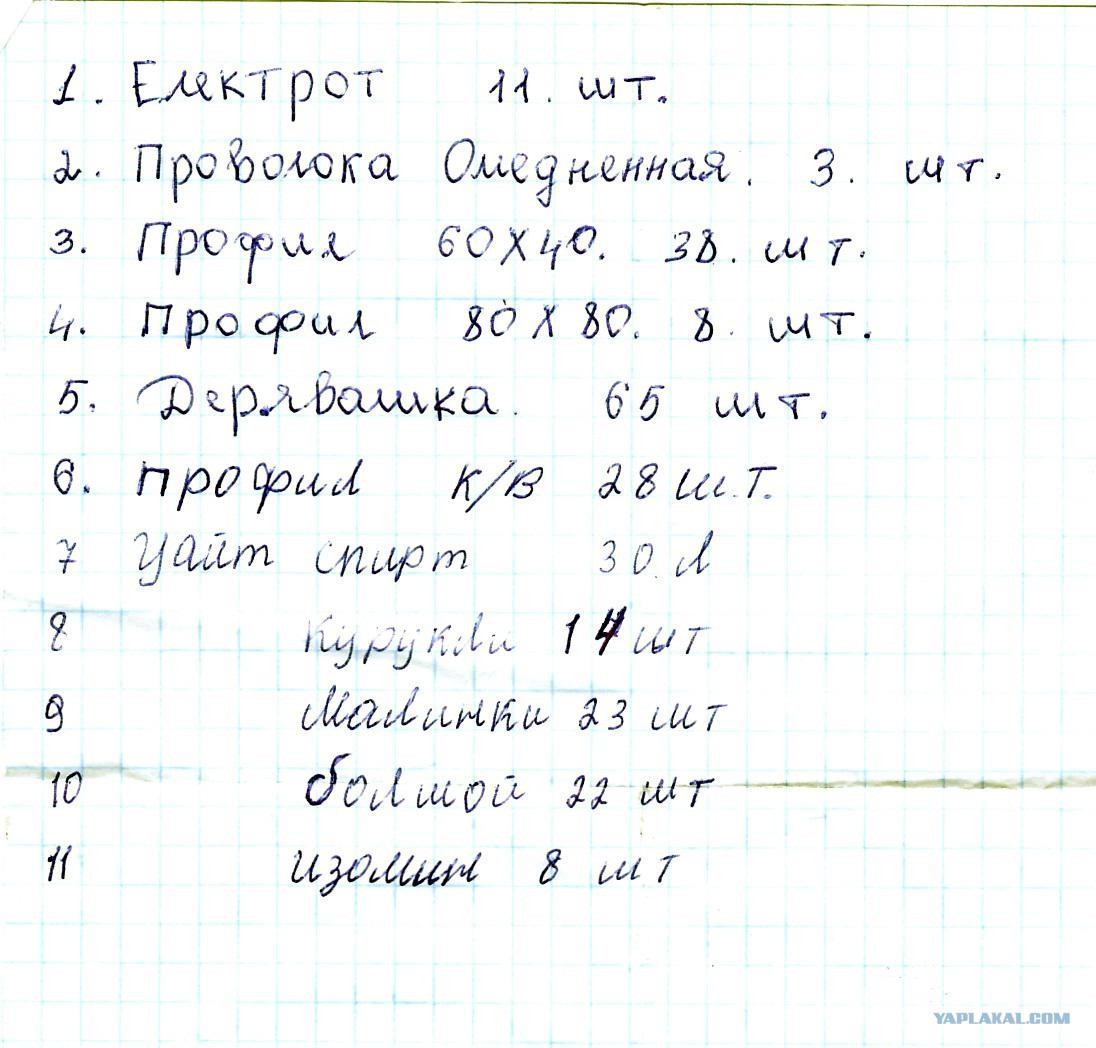 1. Електрот 11. шт.
2. Проволока Омедненная. 3. шт.
3. Профил 60X40. 38. шт.
4. Профил 80X80. 8. шт.
5. Дерявашка. 65 шт.
6. профил К/В 28 ш.т.
7 Уайт спирт 30 л
8 курукли 14 шт
9 Малинки 23 шт
10 болшой 22 шт
11 8 шт
YAPLAKAL.COM